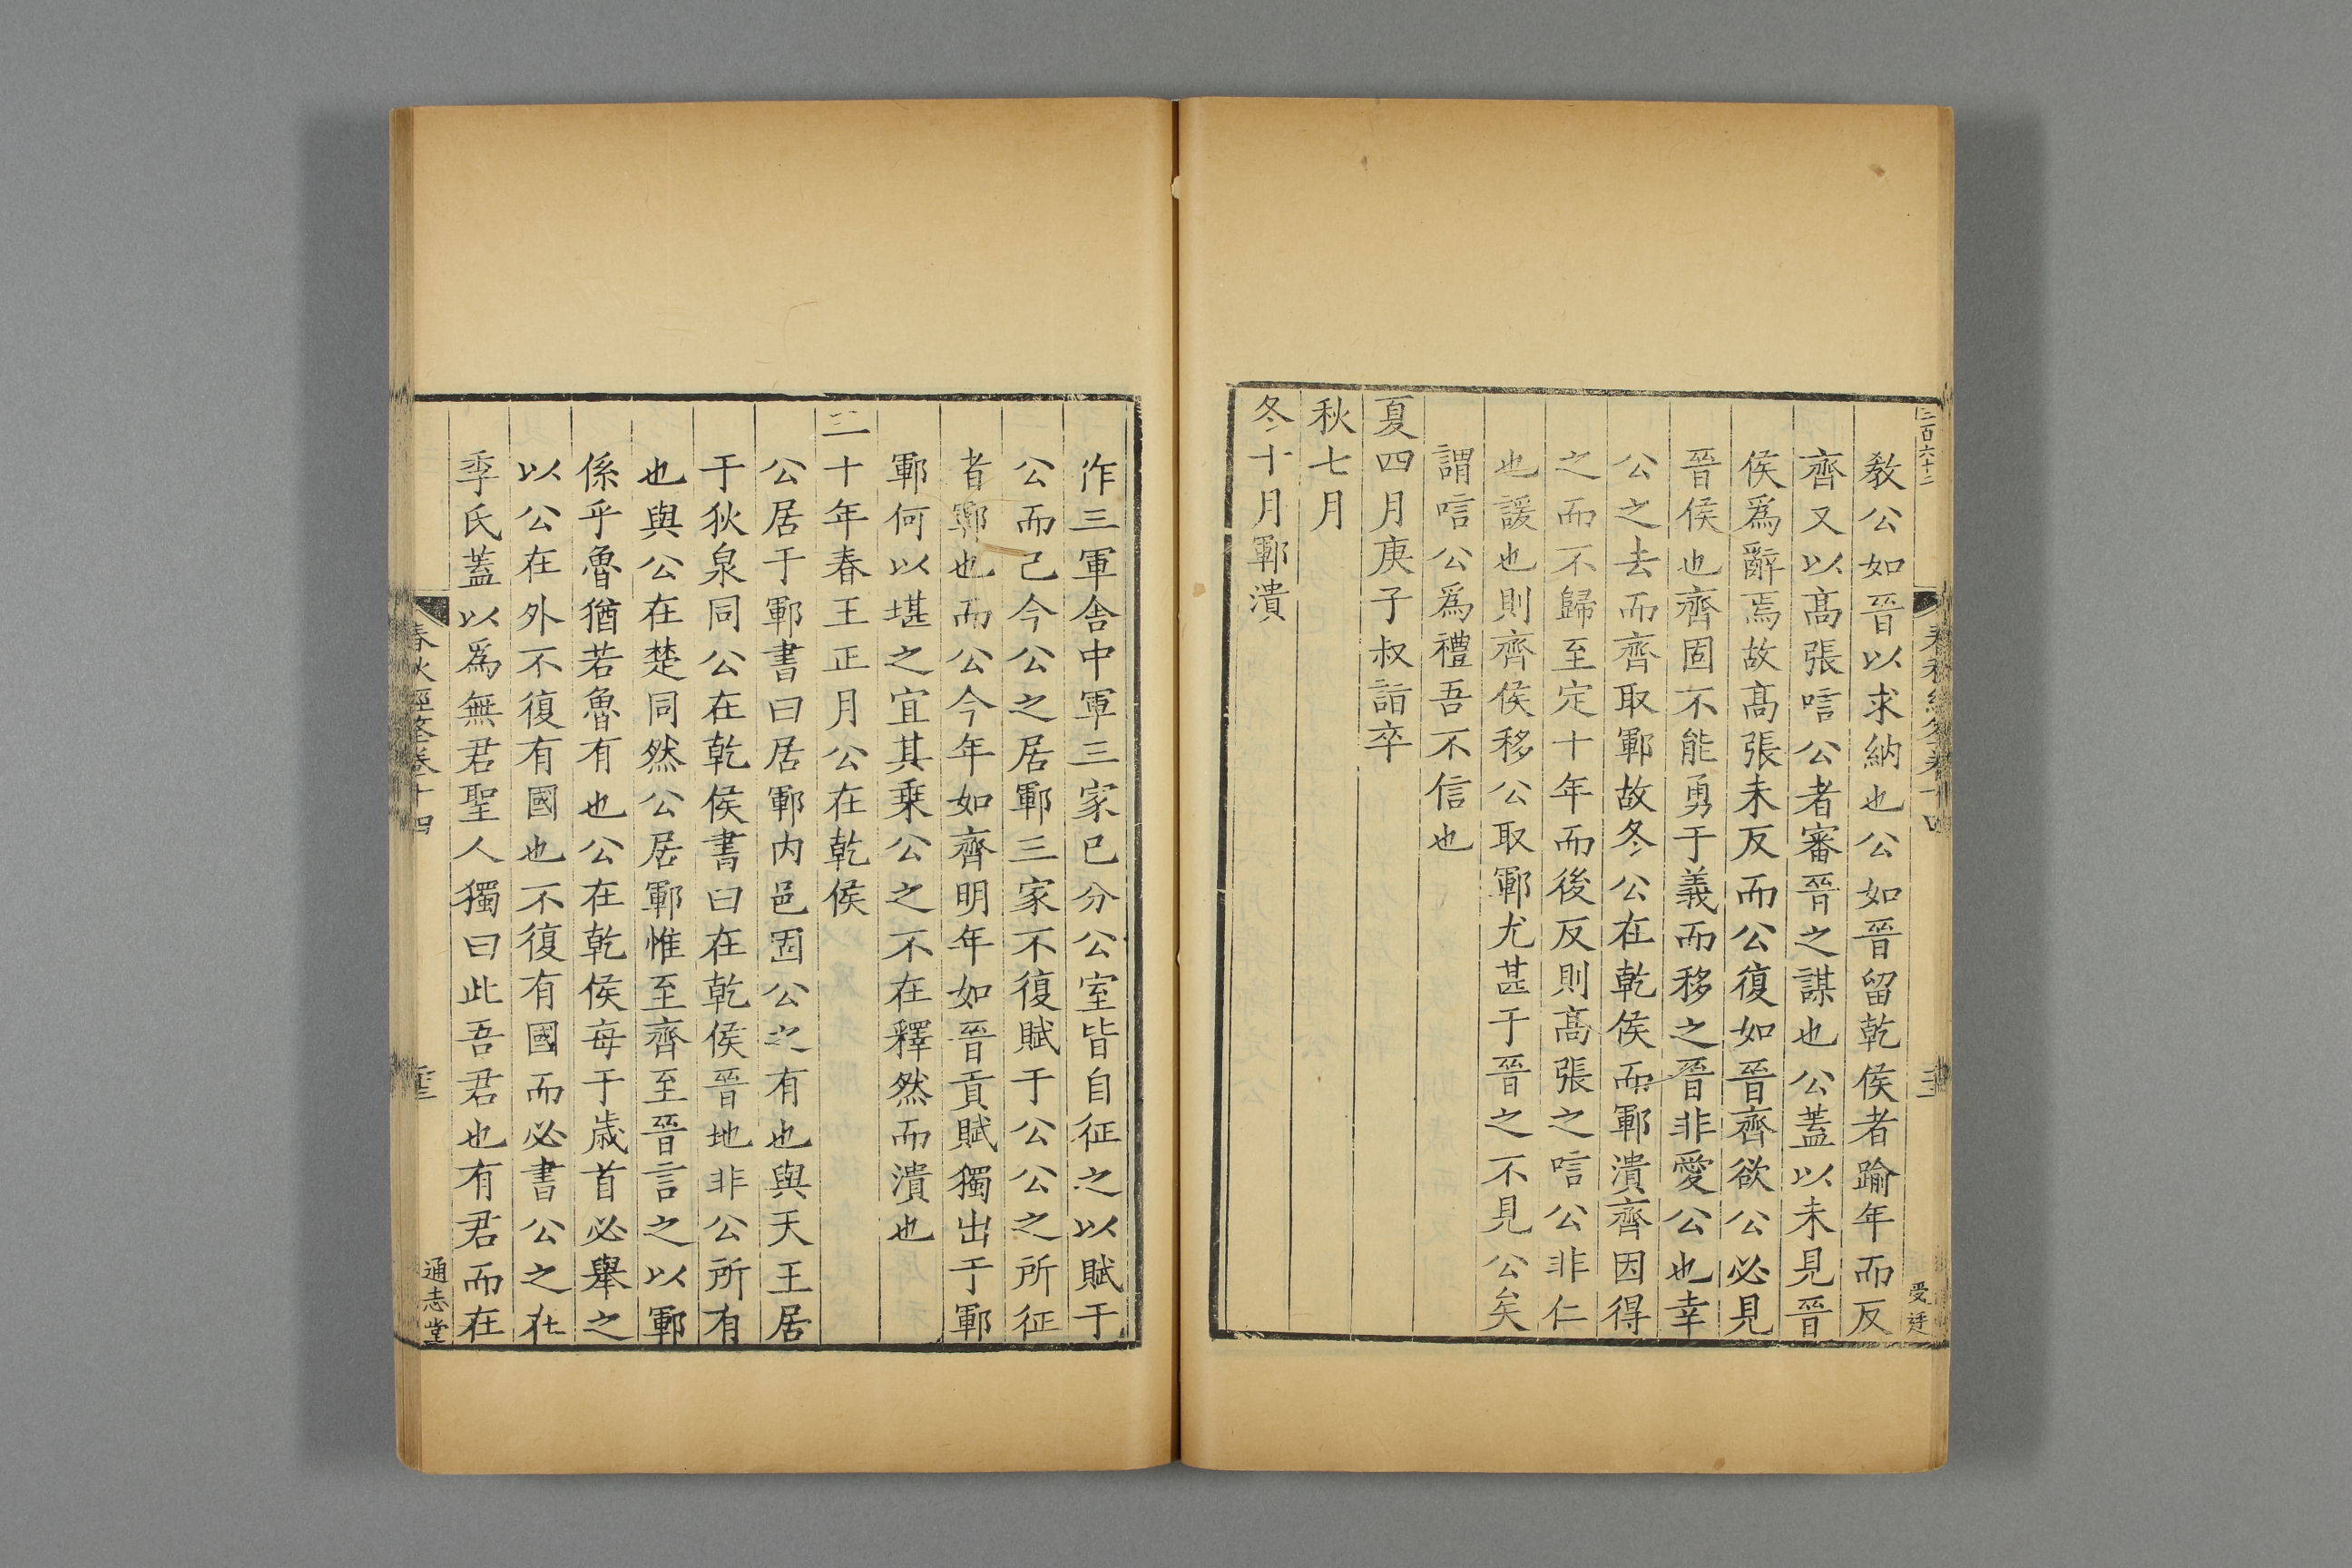 二百六十三
教公如晉以求納也公如晉留乾侯者踰年而反
齊又以髙張唁公者審晉之謀也公蓋以未見晉
侯爲辭焉故髙張未反而公復如晉齊欲公必見
晉侯也齊固不能勇于義而移之晉非愛公也幸
公之去而齊取鄆故冬公在乾侯而鄆潰齊因得
之而不歸至定十年而後反則髙張之唁公非仁
也諼也則齊侯移公取鄆尤甚于晉之不見公矣
謂唁公爲禮吾不信也
夏四月庚子叔詣卒
秋七月
冬十月鄆潰
受廷
作三軍舎中軍三家已分公室皆自征之以賦于
公而己今公之居鄆三家不復賦于公公之所征
者鄆也而公今年如齊明年如晉貢賦獨出于鄆
鄆何以堪之宜其乗公之不在釋然而潰也
三十年春王正月公在乾侯
公居于鄆書曰居鄆内邑固公之有也與天王居
于狄泉同公在乾侯書曰在乾侯晉地非公所有
也與公在楚同然公居鄆惟至齊至晉言之以鄆
係乎魯猶若魯有也公在乾侯每于歳首必舉之
以公在外不復有國也不復有國而必書公之在
季氏蓋以爲無君聖人獨曰此吾君也有君而在
春秋經筌卷十四
通志堂